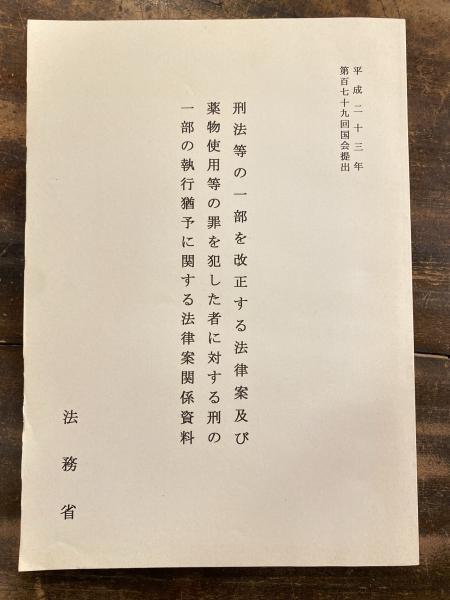 平成二十三年
第百七十九回国会提出
刑法等の一部を改正する法律案及び
薬物使用等の罪を犯した者に対する刑の
一部の執行猶予に関する法律案関係資料
法務省